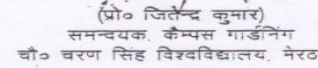 (प्रो० जितेन्द्र कुमार)
समन्दयक, कैम्पस गार्डनिंग
चौ० चरण सिंह विश्वविद्यालय, मेरठ